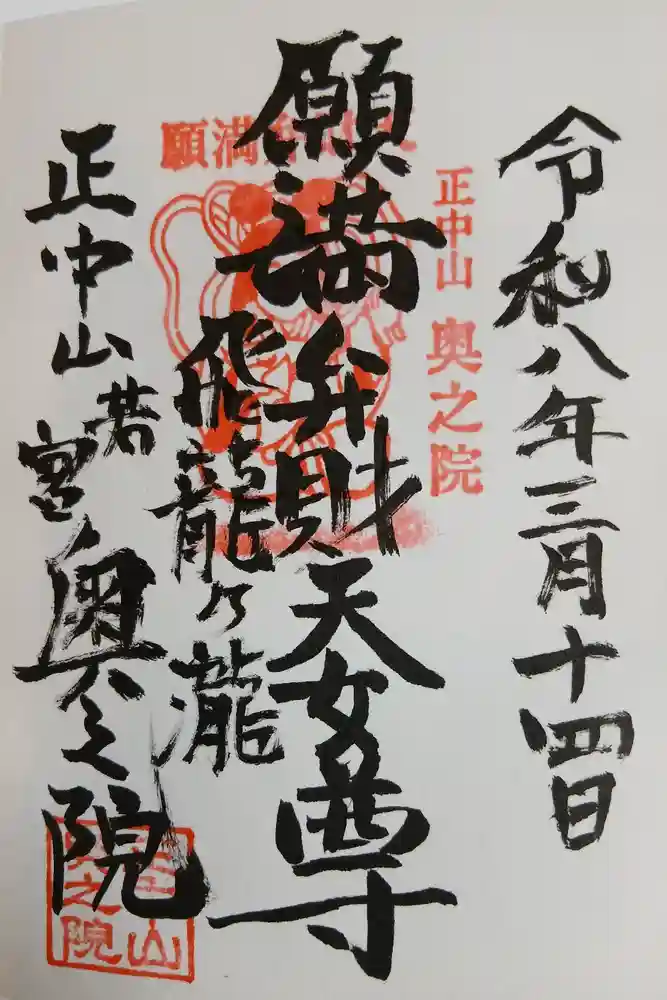 令和八年三月十四日
正中山 奥之院
願満弁財天女尊
願満
飛龍ヶ瀧
正中山若宮奥之院
奥之院